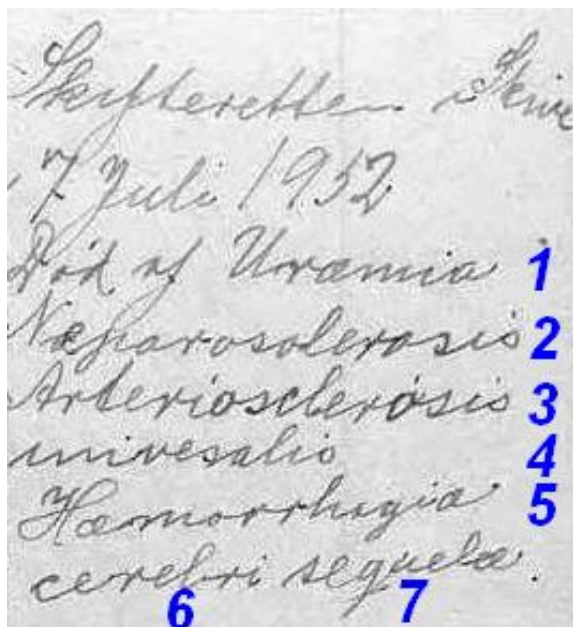 Skifteretten i Skive
7 Juli 1952
Død af Uræmia 1
Næfrarosolerosis 2
Arteriosclerosis 3
univesalis 4
Hæmorrhagia 5
cerebri sequelæ.
6 7